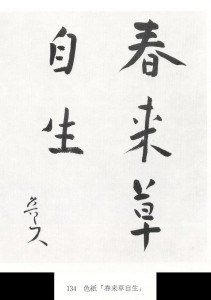 春来草
自生
134 色紙「春来草自生」